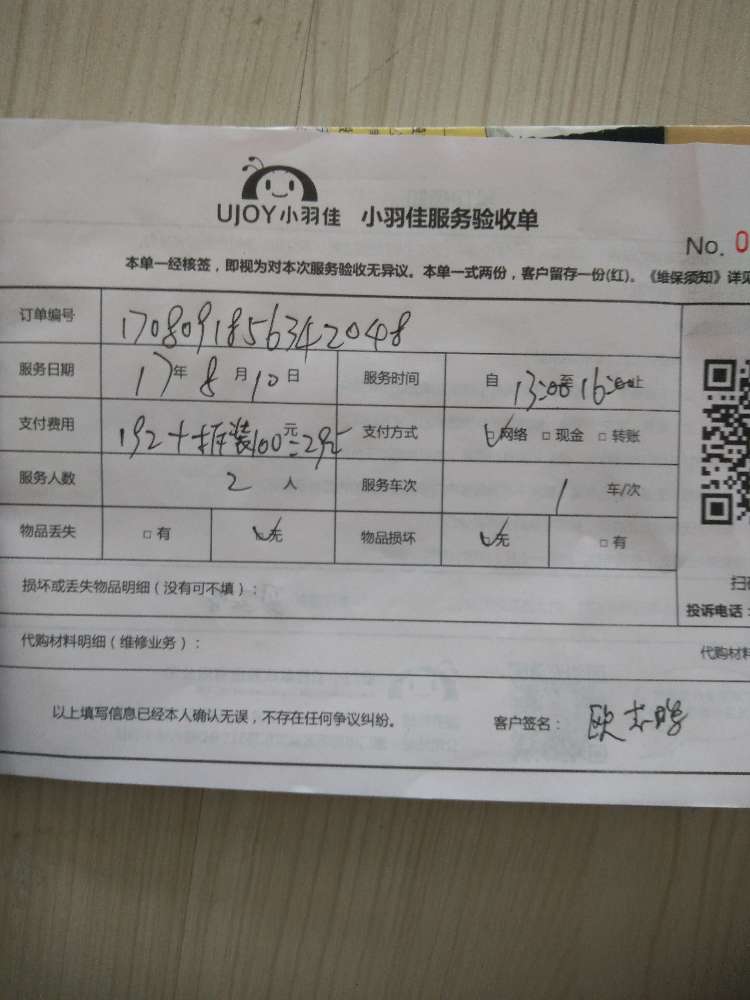 UJOY小羽佳 小羽佳服务验收单
No. 0
本单一经核签，即视为对本次服务验收无异议。本单一式两份，客户留存一份(红)。《维保须知》详见
订单编号 1708091856342048
服务日期 17年8月10日 服务时间 自13:00至16:00止
支付费用 192+拆装100元=292 支付方式 网络 □现金 □转账
服务人数 2人 服务车次 1 车/次
物品丢失 □有 无 物品损坏 无 □有
损坏或丢失物品明细（没有可不填）：
扫
投诉电话：
代购材料明细（维修业务）：
代购材料
以上填写信息已经本人确认无误，不存在任何争议纠纷。 客户签名： 欧